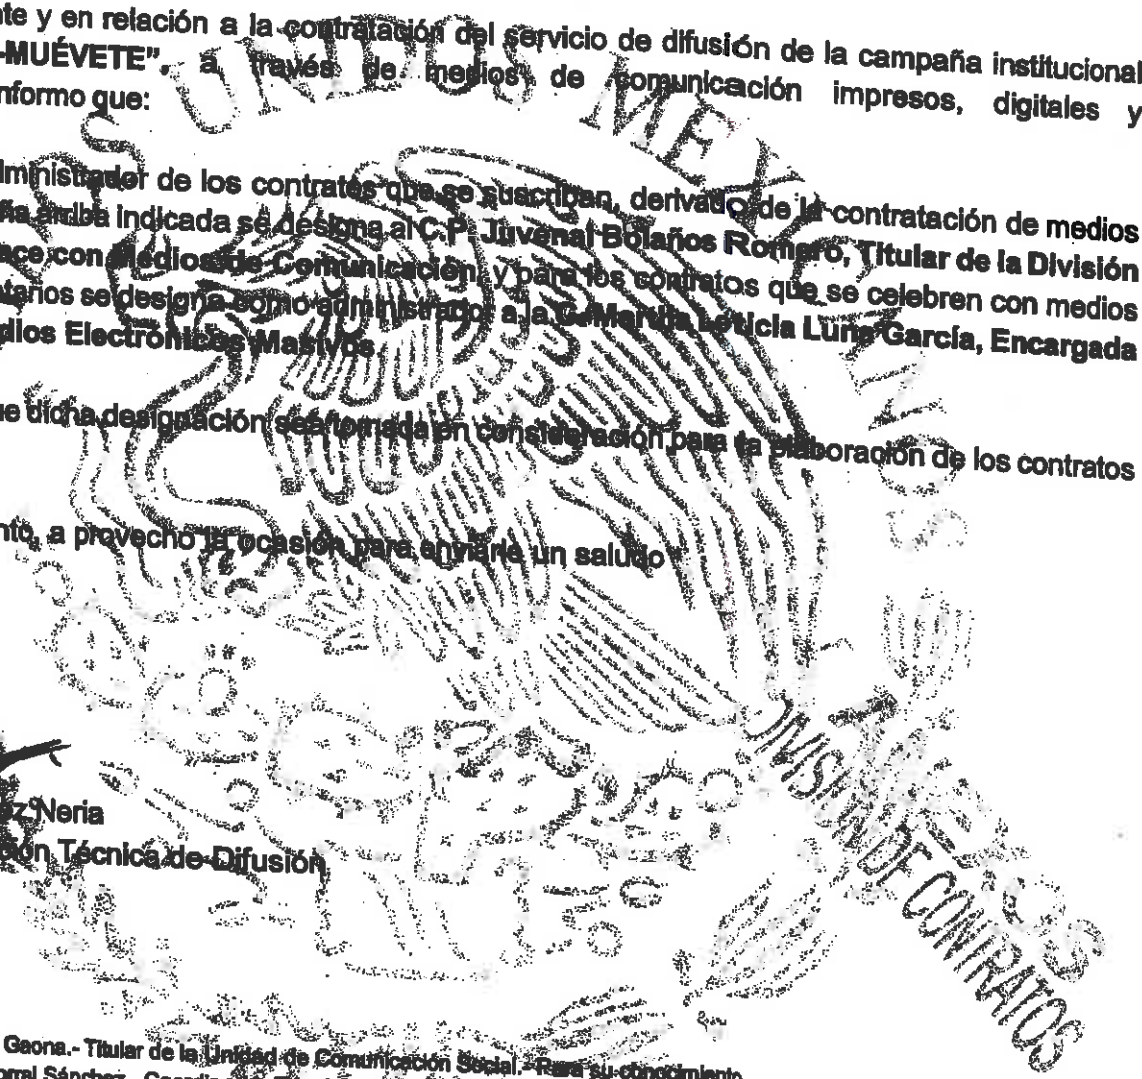 te y en relación a la contratación del servicio de difusión de la campaña institucional
-MUÉVETE", a través de medios de comunicación impresos, digitales y
nformo que:
dministrador de los contratos que se suscriban, derivado de la contratación de medios
ña arriba indicada se designa al C.P. Juvenal Bolaños Romero, Titular de la División
ace con Medios de Comunicación, y para los contratos que se celebren con medios
tarios se designa como administrador a la C. Leticia Luna García, Encargada
dios Electrónicos Masivos.
ue dicha designación sea tomada en consideración para la elaboración de los contratos
nto, a provecho la ocasión para enviarle un saludo
ez Neria
ción Técnica de Difusión
Gaona.- Titular de la Unidad de Comunicación Social.- Para su conocimiento
orral Sánchez
UNIDOS MEXICANOS
DIVISIÓN DE CONTRATOS